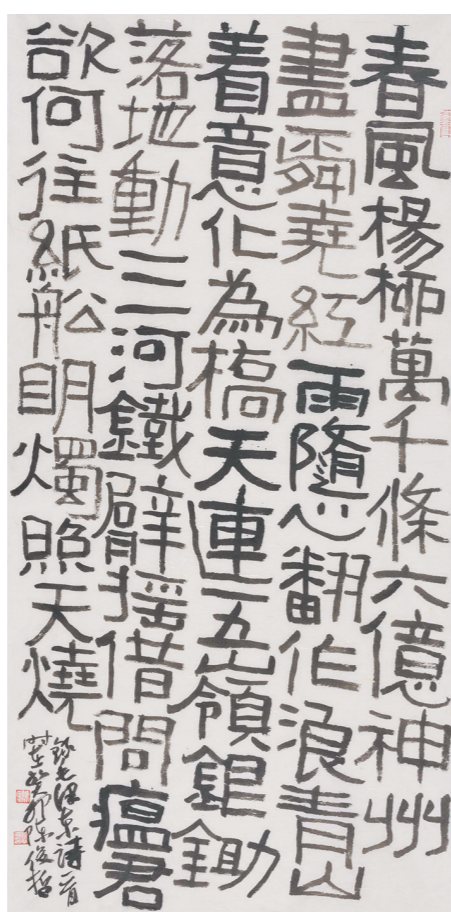 春風楊柳萬千條六億神州
盡舜堯紅雨隨心翻作浪青山
着意化為橋天連五嶺銀鋤
落地動三河鐵臂搖借問瘟君
欲何往紙船明燭照天燒
錄毛澤東詩一首
时在癸卯俊哲